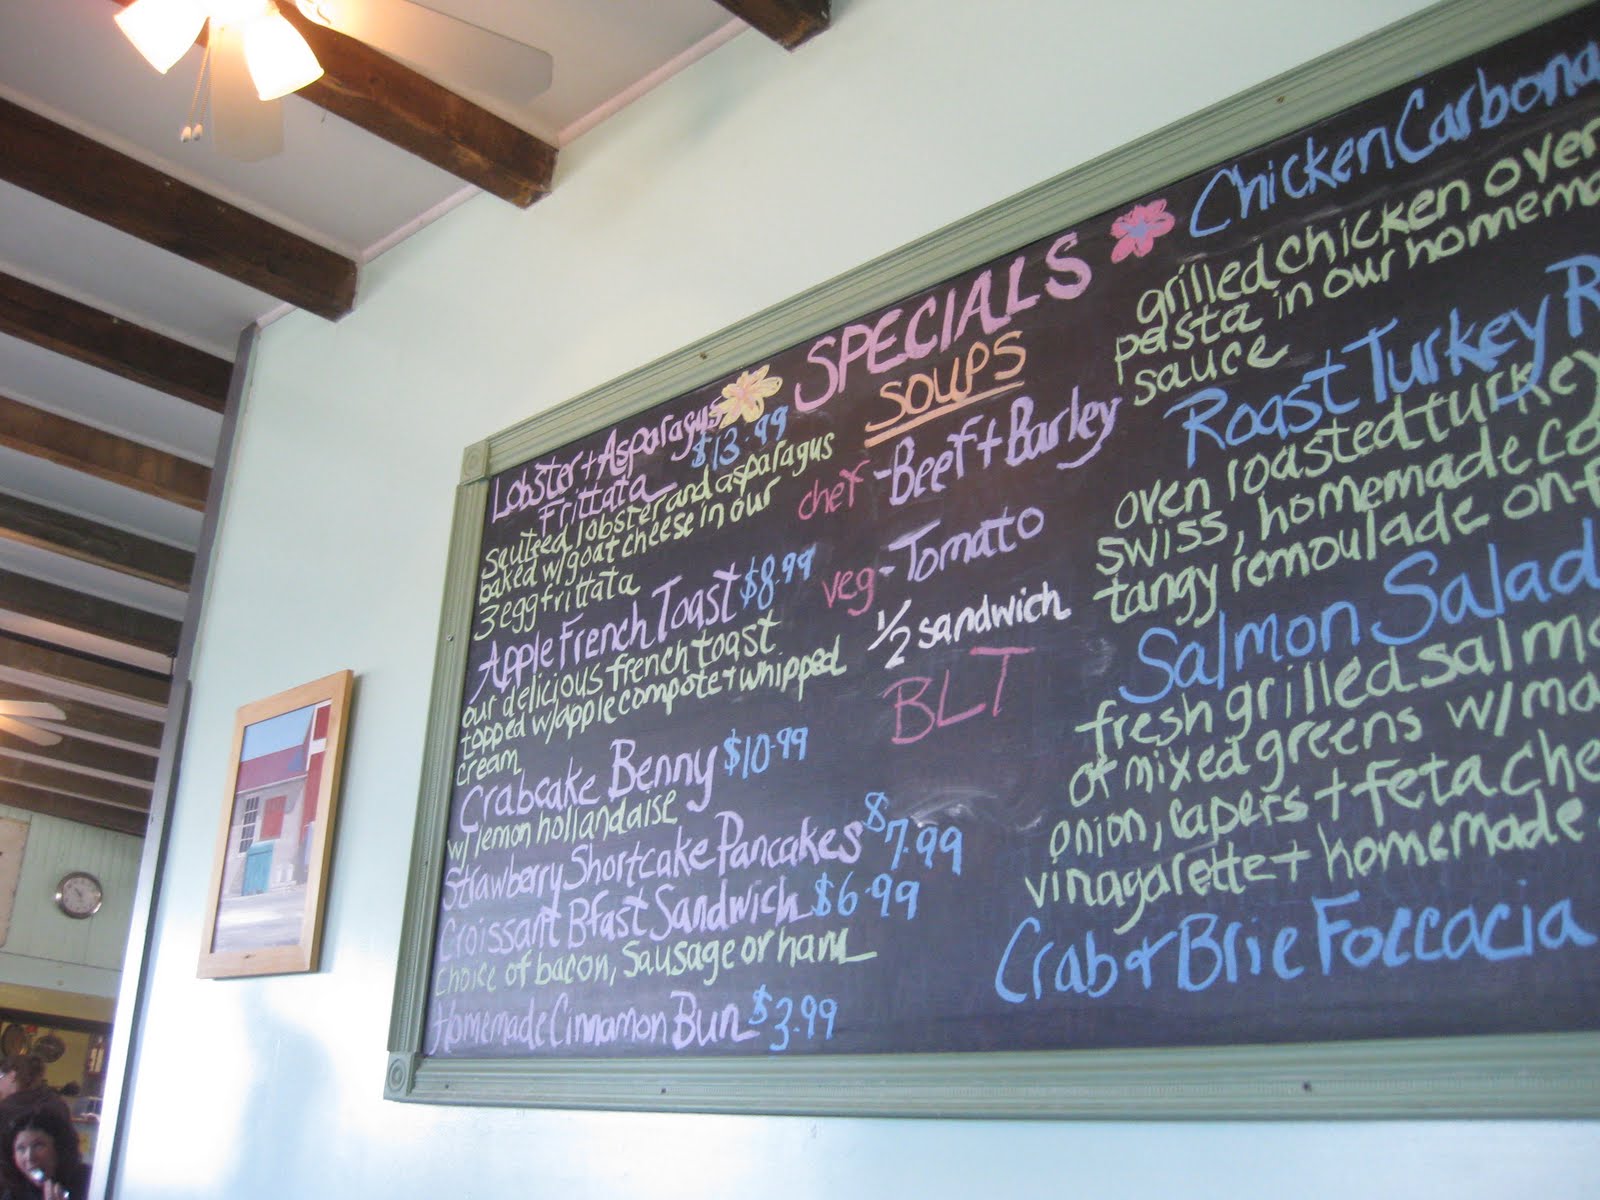 SPECIALS
Lobster + Asparagus
Frittata $13.99
sauteed lobster and asparagus
baked w/goat cheese in our
3 egg frittata
Apple French Toast $8.99
our delicious french toast
topped w/apple compote + whipped
cream
Crabcake Benny $10.99
w/ lemon hollandaise
Strawberry Shortcake Pancakes $7.99
Croissant Bfast Sandwich $6.99
choice of bacon, sausage or ham
Homemade Cinnamon Bun $3.99
SOUPS
chef - Beef + Barley
veg - Tomato
1/2 sandwich
BLT
Chicken Carbona
grilled chicken over
pasta in our homema
sauce
Roast Turkey R
oven roasted turkey
swiss, homemade co
tangy remoulade on f
Salmon Salad
fresh grilled salmo
of mixed greens w/ ma
onion, capers + feta che
vinagarette + homemade
Crab & Brie Foccacia